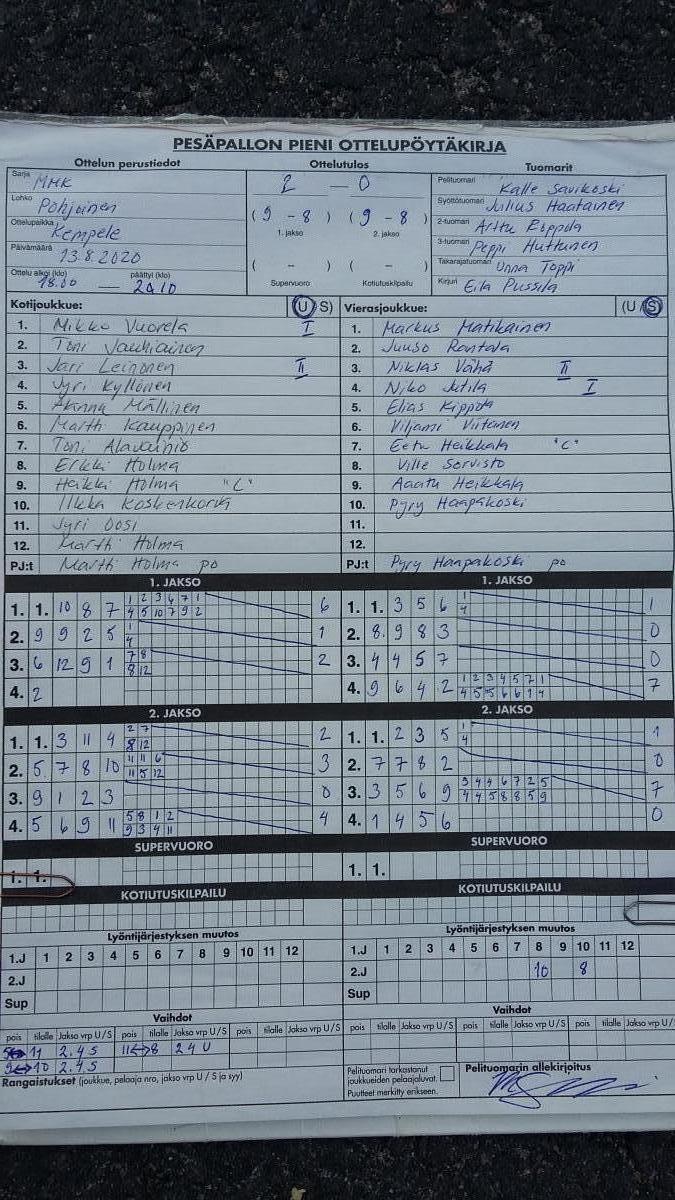 PESÄPALLON PIENI OTTELUPÖYTÄKIRJA
Ottelun perustiedot Ottelutulos Tuomarit
Sarja MHK 2 — 0 Pelituomari Kalle Savikoski
Lohko Pohjoinen (9 - 8) (9 - 8) Syöttötuomari Julius Haatainen
Ottelupaikka Kempele 1. jakso 2. jakso 2-tuomari Arttu Eoppola
Päivämäärä 13.8.2020 ( - ) ( - ) 3-tuomari Peppi Huttunen
Ottelu alkoi (klo) 18.00 — päättyi (klo) 20.10 Supervuoro Kotiutuskilpailu Takarajatuomari Unna Toppi
Kirjuri Eila Pussila
Kotijoukkue: (U/S) Vierasjoukkue: (U/S)
1. Mikko Vuorela I 1. Markus Matikainen
2. Toni Jauhiainen 2. Juuso Rantala
3. Jari Leinonen II 3. Niklas Vähä II
4. Jyri Kyllönen 4. Niko Jutila I
5. Mällinen 5. Elias Kippola
6. Martti Kauppinen 6. Viljami Viitanen
7. Toni Alavainio 7. Eetu Heikkala "C"
8. Erkki Holma 8. Ville Sorvisto
9. Heikki Holma "C" 9. Aaatu Heikkala
10. Ilkka Koskenkorva 10. Pyry Haapakoski
11. Jyri Oosi 11.
12. Martti Holma 12.
PJ:t Martti Holma po PJ:t Pyry Haapakoski po
1. JAKSO 1. JAKSO
1 2 3 6 7 1 1
1. 1. 10 8 7 4 5 10 7 9 2 6 1. 1. 3 5 6 4 1
2. 9 9 2 5 1 4 1 2. 8 9 8 3 0
3. 6 12 9 1 7 8 8 12 2 3. 4 4 5 7 0
4. 2 4. 9 6 4 2 1 2 3 4 5 7 1 4 5 5 6 6 1 4 7
2. JAKSO 2. JAKSO
1. 1. 3 11 4 2 7 8 12 2 1. 1. 2 3 5 1 4 1
2. 5 7 8 10 11 11 6 11 5 12 3 2. 7 7 8 2 0
3. 9 1 2 3 0 3. 3 5 6 9 3 4 4 6 7 2 5 4 4 5 8 8 5 9 7
4. 5 6 9 11 5 8 1 2 9 3 4 11 4 4. 1 4 5 6 0
SUPERVUORO SUPERVUORO
1. 1. 1. 1.
KOTIUTUSKILPAILU KOTIUTUSKILPAILU
Lyöntijärjestyksen muutos Lyöntijärjestyksen muutos
1.J 1 2 3 4 5 6 7 8 9 10 11 12 1.J 1 2 3 4 5 6 7 8 9 10 11 12
2.J 2.J 10 8
Sup Sup
Vaihdot Vaihdot
pois tilalle Jakso vrp U/S pois tilalle Jakso vrp U/S pois tilalle Jakso vrp U/S pois tilalle Jakso vrp U/S pois tilalle Jakso vrp U/S pois tilalle Jakso vrp U/S
11 2.4 S 11↔8 2 4 U
9↔10 2.4 S
Rangaistukset (joukkue, pelaaja nro, jakso vrp U / S ja syy)
Pelituomari tarkastanut joukkueiden pelaajaluvat.
Puutteet merkitty erikseen.
Pelituomarin allekirjoitus